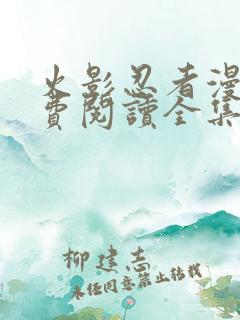 火影忍者漫
費閱讀全集
柳建志
未经同意禁止转载